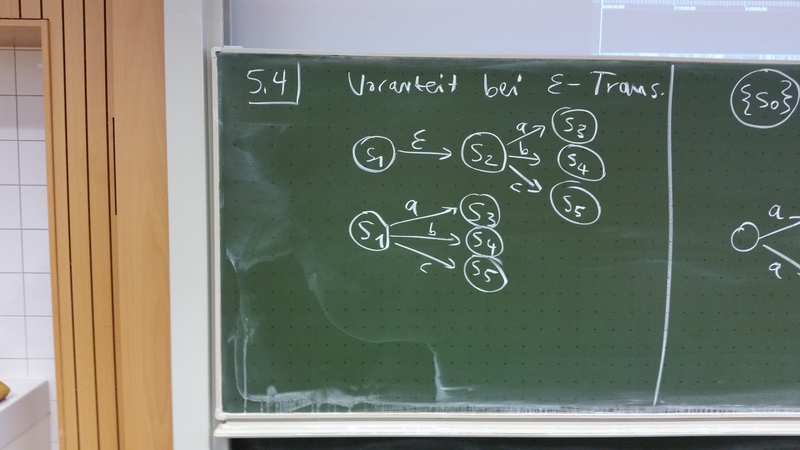 5.4 Vorarbeit bei ε-Trans.
S1 ε S2 a S3
b S4
c S5
S1 a S3
b S4
c S5
{S0}
a
a